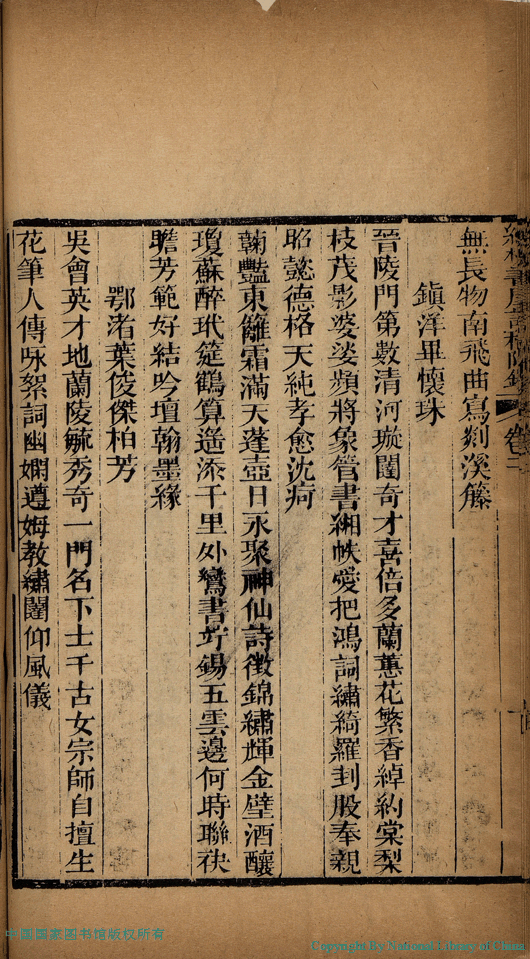 無長物南飛曲寫剡溪籐
鎮洋畢懷珠
晉陵門第數清河璇閨奇才喜倍多蘭蕙花繁香綽約棠梨
枝茂影婆娑頻將象管書緗帙愛把鴻詞繡綺羅刲股奉親
昭懿德格天純孝愈沈疴
蘜豔東籬霜滿天蓬壺日永聚神仙詩徵錦繡輝金壁酒釀
瓊蘇醉玳筵鶴算遙添千里外鸞書竚錫五雲邊何時聯袂
瞻芳範好結吟壇翰墨緣
鄂渚葉俊傑柏芳
吳會英才地蘭陵毓秀奇一門名下士千古女宗師自擅生
花筆人傳咏絮詞幽嫻遵姆教繡閨仰風儀
中国国家图书馆版权所有
Copyright by National Library of China